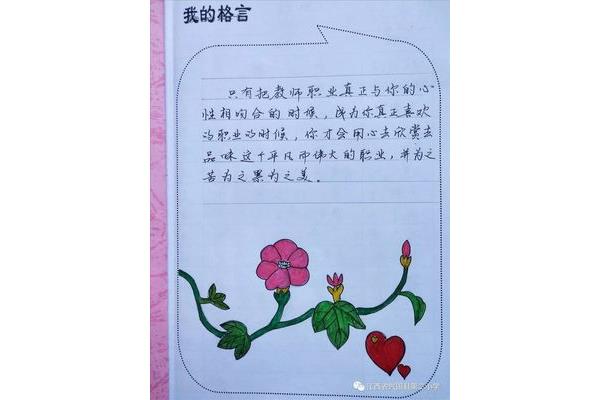 我的格言
只有把教师职业真正与你的心
性相吻合的时候，成为你真正喜欢
的职业的时候，你才会用心去欣赏去
品味这个平凡而伟大的职业，并为之
苦为之累为之美。